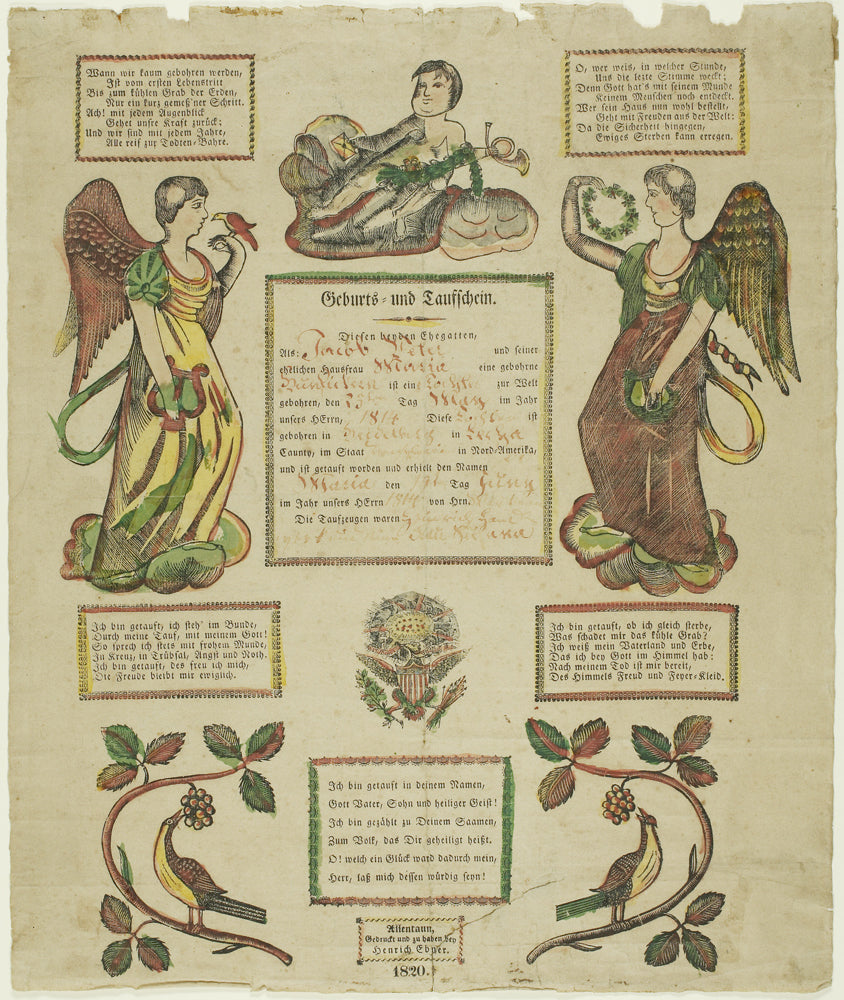 Wann wir kaum gebohren werden,
Ist vom ersten Lebenstritt
Bis zum kühlen Grab der Erden,
Nur ein kurz gemeß'ner Schritt.
Ach! mit jedem Augenblick
Gehet unsre Kraft zurück;
Und wir sind mit jedem Jahre,
Alle reif zur Todten-Bahre.
O, wer weis, in welcher Stunde,
Uns die lezte Stimme weckt;
Denn Gott hat's mit seinem Munde
Keinem Menschen noch entdeckt.
Wer sein Haus nun wohl bestellt,
Geht mit Freuden aus der Welt:
Da die Sicherheit hingegen,
Ewiges Sterben kann erregen.
Geburts- und Taufschein.
Diesen beyden Ehegatten,
Als: Jacob Peter und seiner
ehlichen Hausfrau Maria eine gebohrne
ist eine Tochter zur Welt
gebohren, den 23ten Tag May im Jahr
unsers HErrn, 1814 Diese Tochter ist
gebohren in Heidelberg in Lecha
Caunty, im Staat in Nord-Amerika,
und ist getauft worden und erhielt den Namen
Maria den Tag Juny
im Jahr unsers HErrn 1814 von Hrn.
Die Taufzeugen waren Heinrich
Ich bin getauft, ich steh' im Bunde,
Durch meine Tauf, mit meinem Gott!
So sprech ich stets mit frohem Munde,
In Kreuz, in Trübsal, Angst und Noth.
Ich bin getauft, des freu ich mich,
Die Freude bleibt mir ewiglich.
Ich bin getauft, ob ich gleich sterbe,
Was schadet mir das kühle Grab?
Ich weiß mein Vaterland und Erbe,
Das ich bey Gott im Himmel hab:
Nach meinem Tod ist mir bereit,
Des Himmels Freud und Feyer-Kleid.
Ich bin getauft in deinem Namen,
Gott Vater, Sohn und heiliger Geist!
Ich bin gezählt zu Deinem Saamen,
Zum Volk, das Dir geheiligt heißt.
O! welch ein Glück ward dadurch mein,
Herr, laß mich dessen würdig seyn!
Allentaun,
Gedruckt und zu haben bey
Henrich Ebner.
1820.